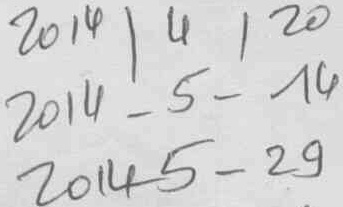 2014 | 4 | 20
2014 - 5 - 14
2014-5 - 29